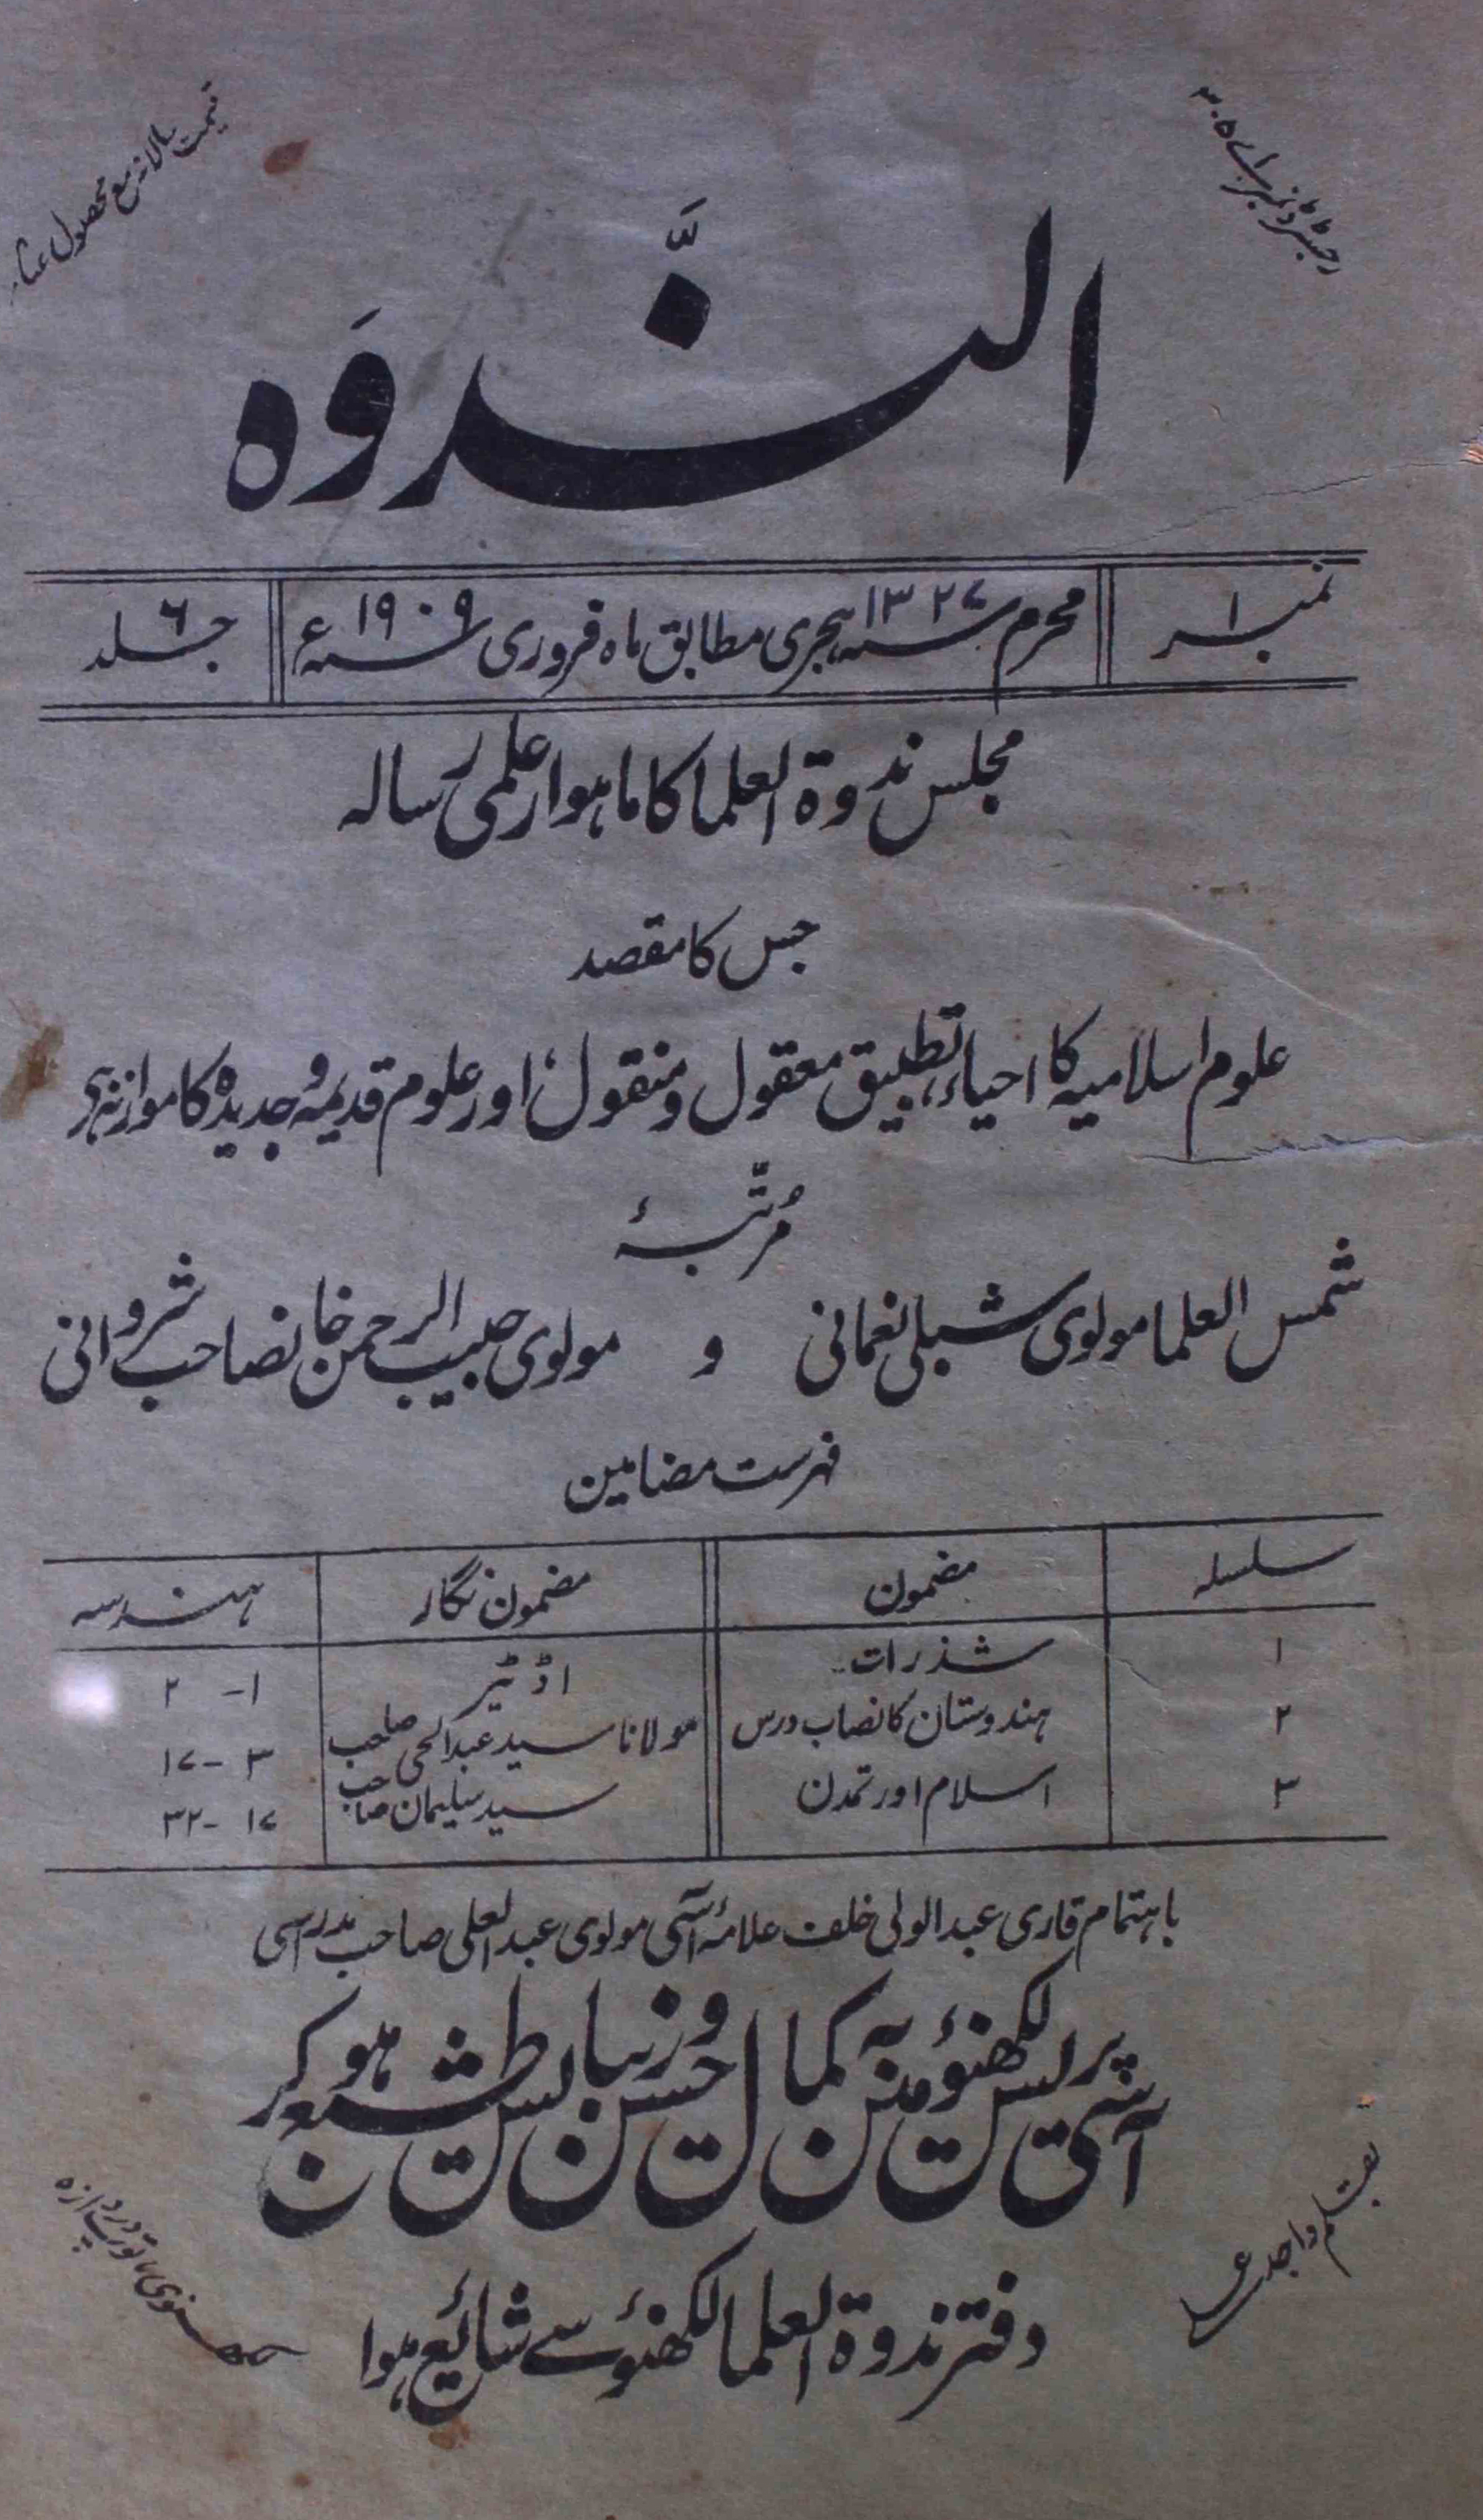 رجسٹرڈ نمبر اے ۳۰۵
قیمت سالانہ مع محصول
النَّدوَہ
نمبر ۱
محرم سنہ ۱۳۲۷ ہجری مطابق ماہ فروری سنہ ۱۹۰۹ء
جلد ۶
مجلس ندوۃ العلما کا ماہوار علمی رسالہ
جس کا مقصد
علوم اسلامیہ کا احیاء، تطبیق معقول و منقول، اور علوم قدیمہ و جدیدہ کا موازنہ ہی
مُرتّبہٴ
شمس العلما مولوی شبلی نعمانی و مولوی حبیب الرحمن خانصاحب شروانی
فہرست مضامین
سلسلہ مضمون مضمون نگار ہندسہ
۱ شذرات اڈٹیر ۱- ۲
۲ ہندوستان کا نصاب درس مولانا سید عبدالحی صاحب ۳-۱۷
۳ اسلام اور تمدن سید سلیمان صاحب ۱۷-۳۲
باہتمام قاری عبدالولی خلف علامۂ آسی مولوی عبدالعلی صاحب مدراسی
آسی پریس لکھنؤ مین بہ کمال حسن و زیبایش طبع ہو کر
دفتر ندوۃ العلما لکھنؤ سے شائع ہوا
بقلم واجد علی